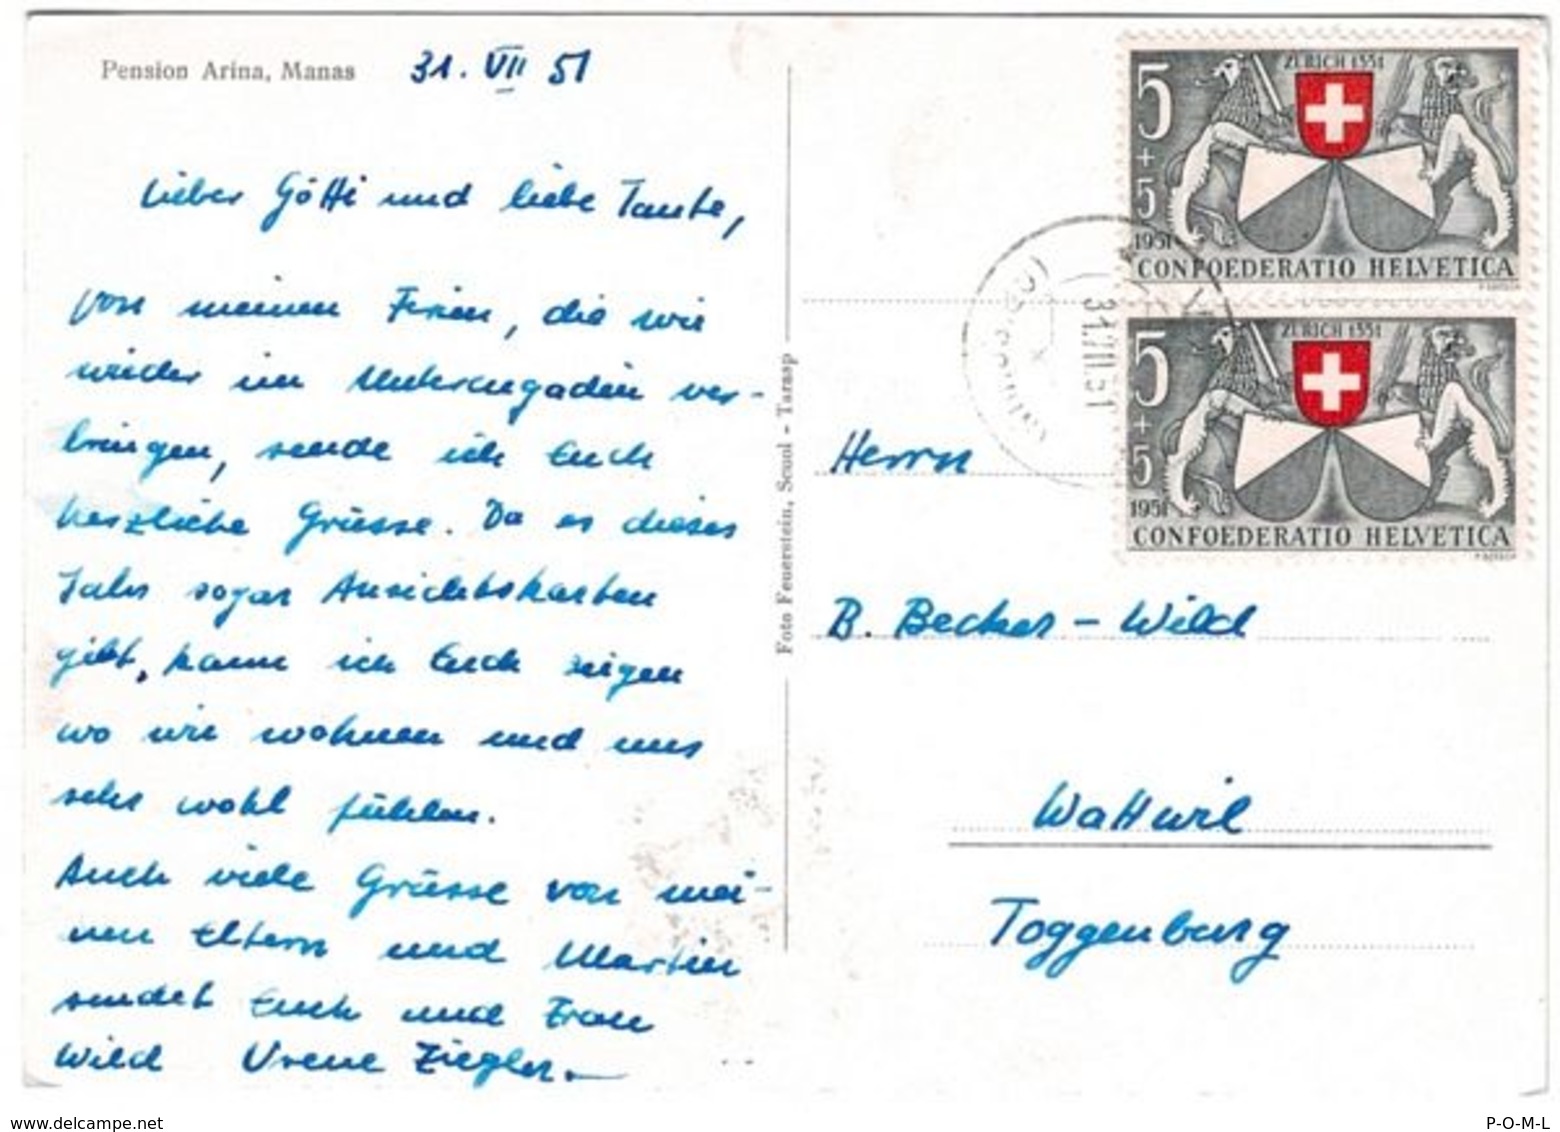 Pension Arina, Manas
31. VII 51
Lieber Götti und liebe Tante,
von meinen Ferien, die wir
wieder im Unterengadin ver-
bringen, sende ich Euch
herzliche Grüsse. Da es dieses
Jahr sogar Ansichtskarten
gibt, kann ich Euch zeigen
wo wir wohnen und uns
sehr wohl fühlen.
Auch viele Grüsse von mei-
nen Eltern und Martin
sendet Euch und Frau
Wild Vrene Ziegler.
Foto Feuerstein, Scuol - Tarasp
ZÜRICH 1351
5
+
5
1951
CONFOEDERATIO HELVETICA
ZÜRICH 1351
5
+
5
1951
CONFOEDERATIO HELVETICA
31.VII.51
Herrn
B. Becker - Wild
Wattwil
Toggenburg
www.delcampe.net
P-O-M-L